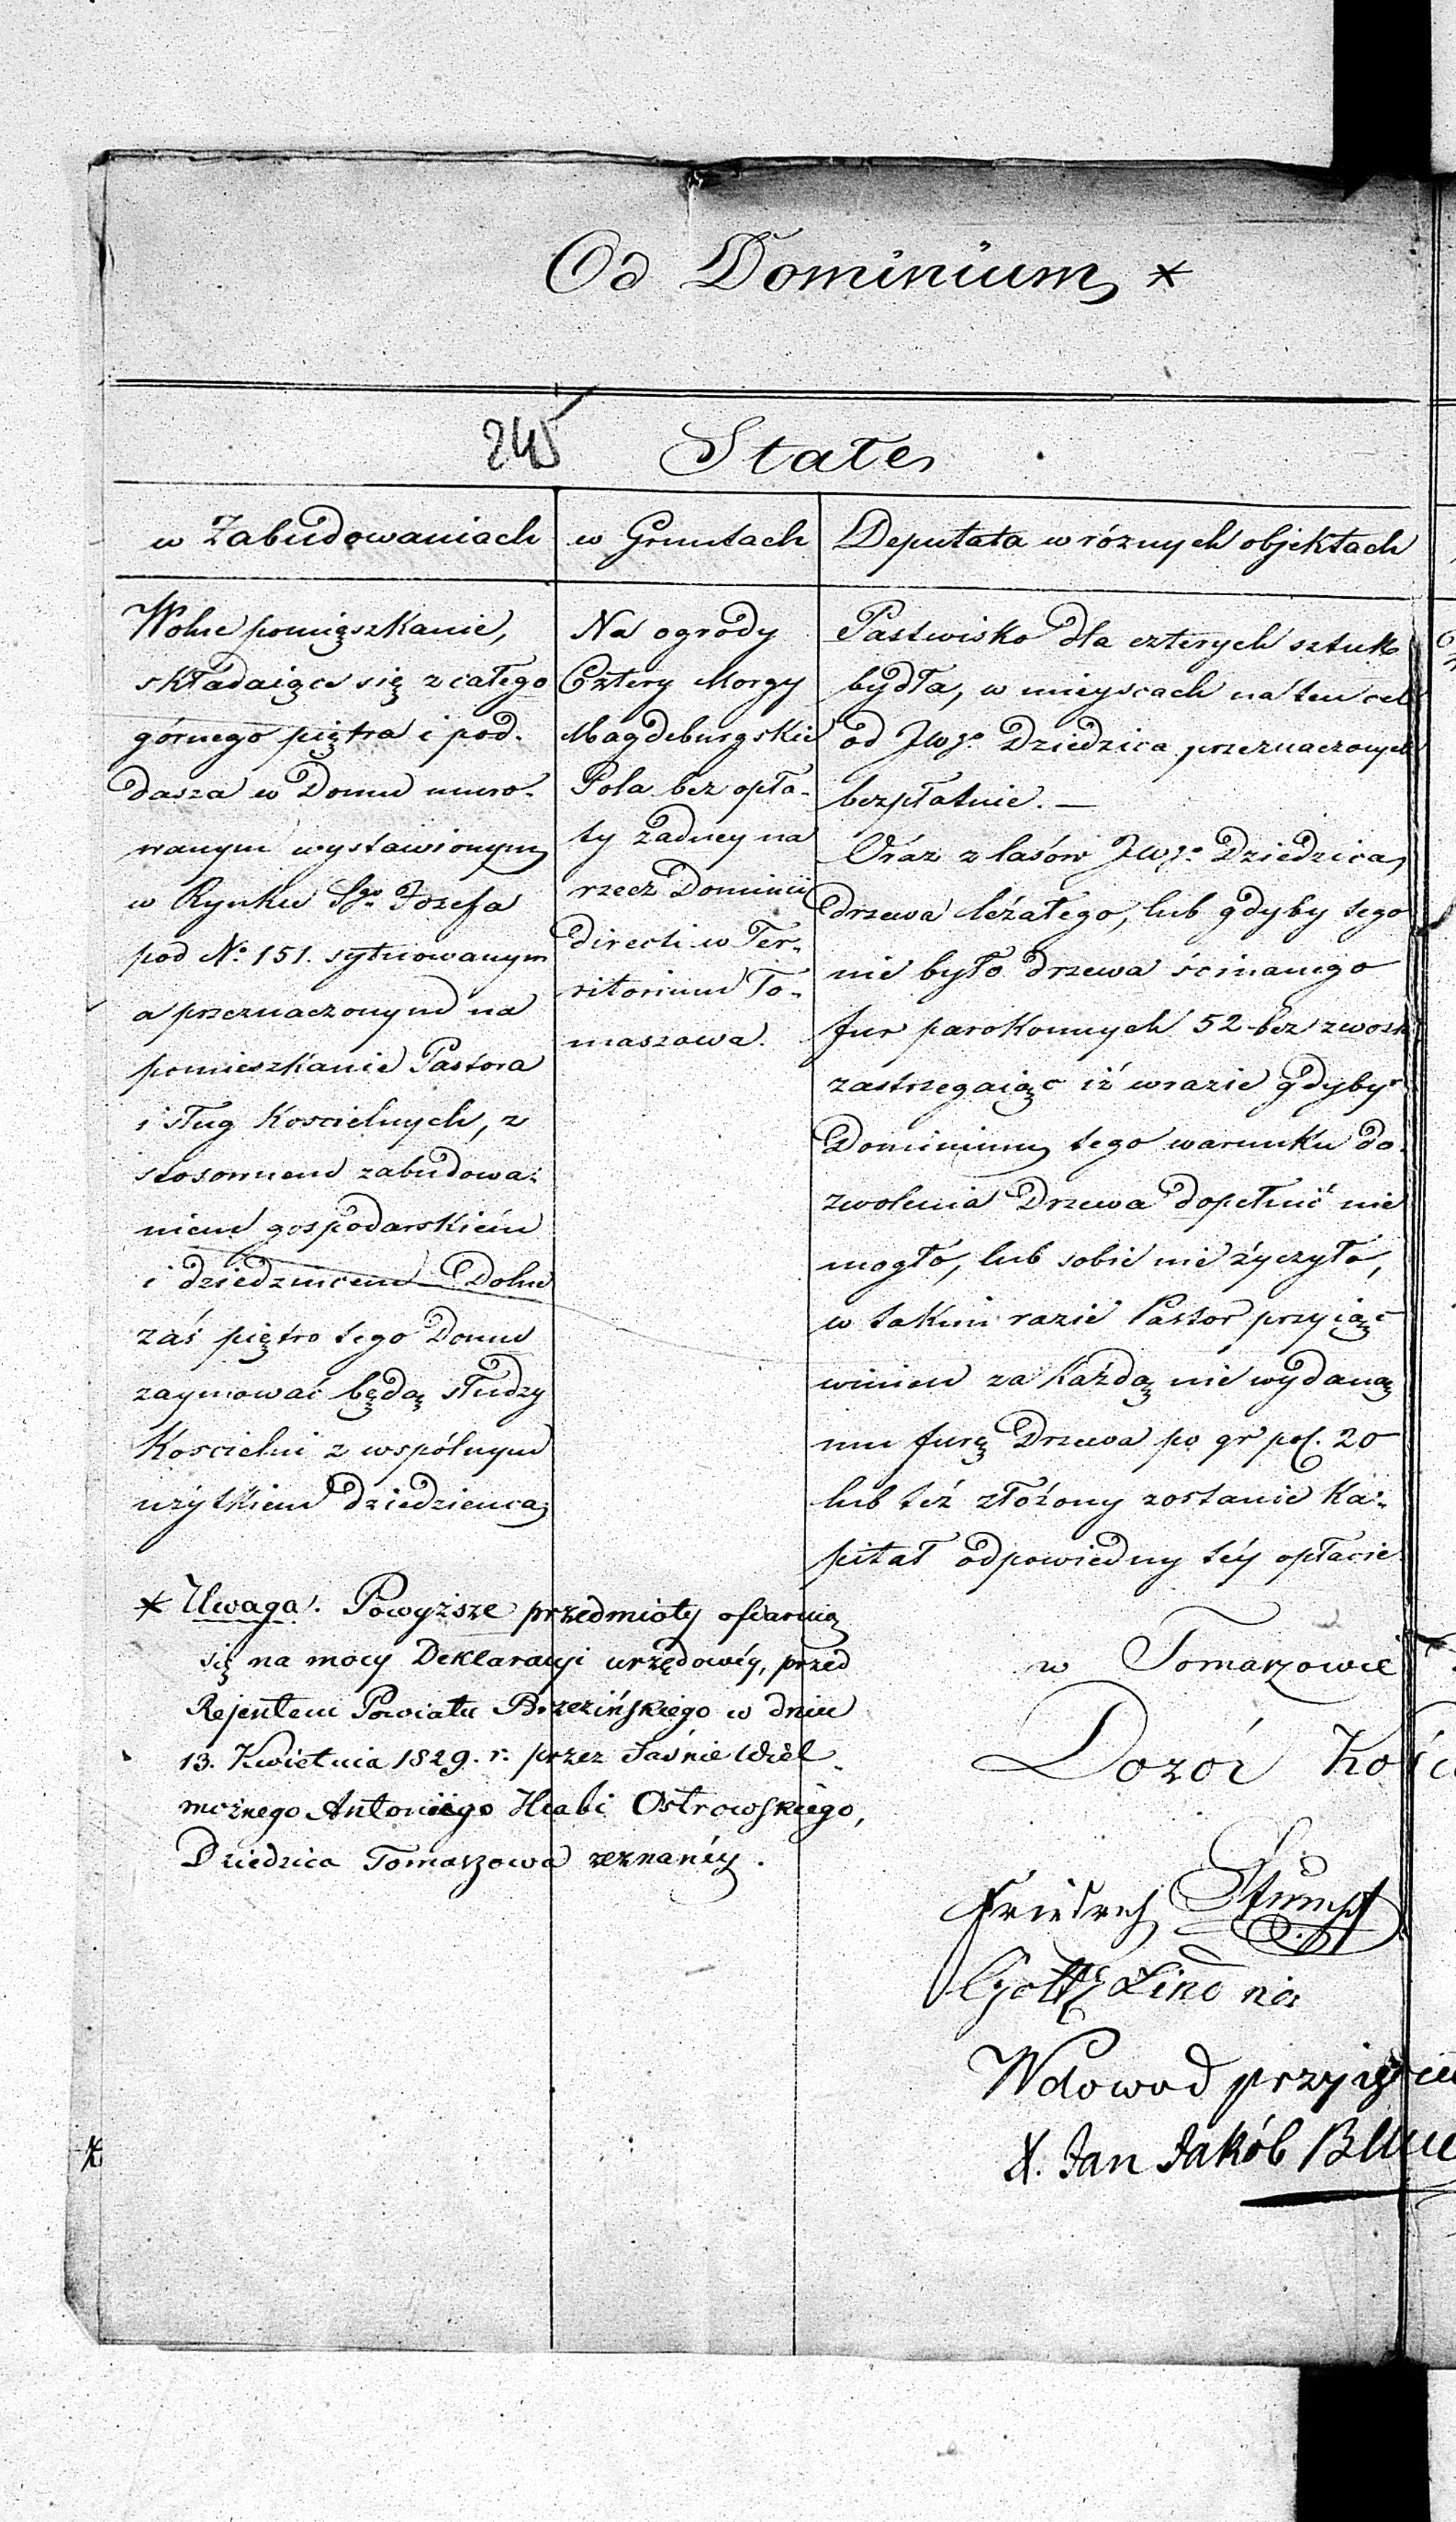 Od Dominium *
245
Stałe
w Zabudowaniach
Wolne pomięszkanie,
składaiące się z całego
górnego piętra i pod-
dasza w Domu muro-
wanym wystawionym
w Rynku Sgo Jozefa
pod No 151. sytuowanym
a przeznaczonym na
pomieszkanie Pastora
i sług Koscielnych, z
stosownem zabudowa-
niem gospodarskiém
i dziedzincem Dolne
zaś piętro tego Domu
zaymować będą słudzy
Koscielni z wspólnym
użytkiem dziedzienca
w Gruntach
Na ogrody
Cztery Morgy
Magdeburgskie
Pola bez opła-
ty żadney na
rzecz Dominii
directi w Ter-
ritorium To-
maszowa.
Deputata w róznych objektach
Pastwisko dla czterych sztuk
bydła, w mieyscach na ten cel
od JWgo Dziedzica przeznaczonych
bezpłatnie. —
Oraz z lasów JWgo Dziedzica,
drzewa leżałego, lub gdyby tego
nie było drzewa ścinanego
fur parokonnych 52 bez zwozk
zastrzegaiąc iż w razie gdyby
Dominium tego warunku do-
zwolenia Drzewa dopełnić nie
mogło, lub sobie nie życzyło,
w takim razie Pastor przyiąć
winien za każdą nie wydaną
mu furę Drzewa po gr pol. 20
lub też złożony zostanie Ka-
pitał odpowiedny téy opłacie
* Uwaga. Powyzsze przedmioty ofiaruią
się na mocy Deklaracyi urzędowéy, przed
Rejentem Powiatu Brzezińskiego w dniu
13. Kwietnia 1829. r. przez Jaśnie Wiel-
możnego Antoniego Hrabi Ostrowskiego,
Dziedzica Tomaszowa zeznanéy.
w Tomaszowie
Dozór Kośc
Friedrich Stumpf
Gottf Lino
W dowod przyięcia
X. Jan Jakób